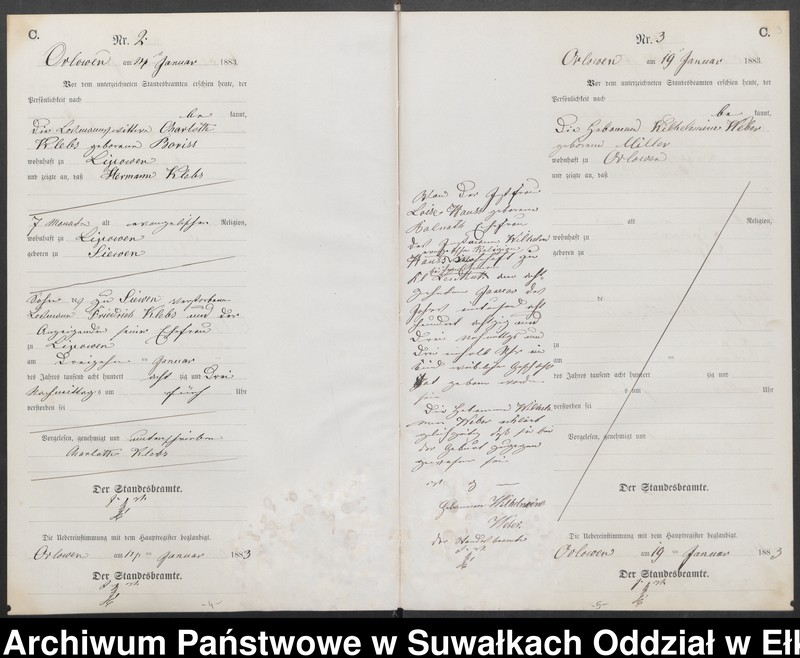 C.
Nr. 2.
Orlowen am 14 Januar 1883.
Vor dem unterzeichneten Standesbeamten erschien heute, der
Persönlichkeit nach
be kannt,
Die Losmannswittwe Charlotte
Klebs geborene Boriss
wohnhaft zu Lipowen
und zeigte an, daß Hermann Klebs
7 Monate alt evangelischer Religion,
wohnhaft zu Lipowen
geboren zu Siewen
Sohn des zu Siewen verstorbenen
Losmann Friedrich Klebs und der
Anzeigenden seiner Ehefrau
zu Lipowen
am Dreizehn ten Januar
des Jahres tausend acht hundert acht zig und Drei
Nachmittags um fünf Uhr
verstorben sei
Vorgelesen, genehmigt und unterschrieben
Charlotte Klebs
Der Standesbeamte.
Die Uebereinstimmung mit dem Hauptregister beglaubigt.
Orlowen am 14 ten Januar 1883
Der Standesbeamte.
-4-
C.
Nr. 3
Orlowen am 19 Januar 1883
Vor dem unterzeichneten Standesbeamten erschien heute, der
Persönlichkeit nach
be kannt,
Die Hebamme Wilhelmine Weber
geborene Miller
wohnhaft zu Orlowen
und zeigte an, daß
von der Instfrau
Louise geborene
Ehefrau
des Instmann Wilhelm
evangelischer Religion
wohnhaft zu
Kl am acht
zehnten Januar des
Jahres tausend acht
hundert achtzig und
Drei Vormittags um
Drei einhalb Uhr ein
Kind weiblichen Geschlechts
tot geboren worden
sei
Die Hebamme Wilhel
mine Weber erklärt
gleichzeitig daß sie bei
der Geburt zugegen
gewesen sei
Hebamme Wilhelmine
Weber
der Standesbeamte
alt Religion,
wohnhaft zu
geboren zu
de
zu
am ten
des Jahres tausend acht hundert zig und
s um Uhr
verstorben sei
Vorgelesen, genehmigt und
Der Standesbeamte.
Die Uebereinstimmung mit dem Hauptregister beglaubigt.
Orlowen am 19 ten Januar 1883
Der Standesbeamte.
-5-
Archiwum Państwowe w Suwałkach Oddział w Ełk